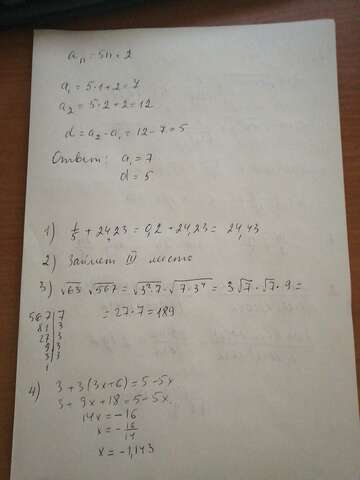 aₙ = 5n + 2
a₁ = 5·1+2 = 7
a₂ = 5·2+2 = 12
d = a₂ - a₁ = 12 - 7 = 5
Ответ: a₁ = 7
d = 5
1) 1/5 + 24,23 = 0,2 + 24,23 = 24,43
2) Займет III место
3) √63 · √567 = √(3²·7) · √(7·3⁴) = 3√7 · √7 · 9 =
= 27·7 = 189
567 | 7
81 | 3
27 | 3
9 | 3
3 | 3
1
4) 3 + 3(3x+6) = 5 - 5x
3 + 9x + 18 = 5 - 5x
14x = -16
x = -16/14
x = -1,143